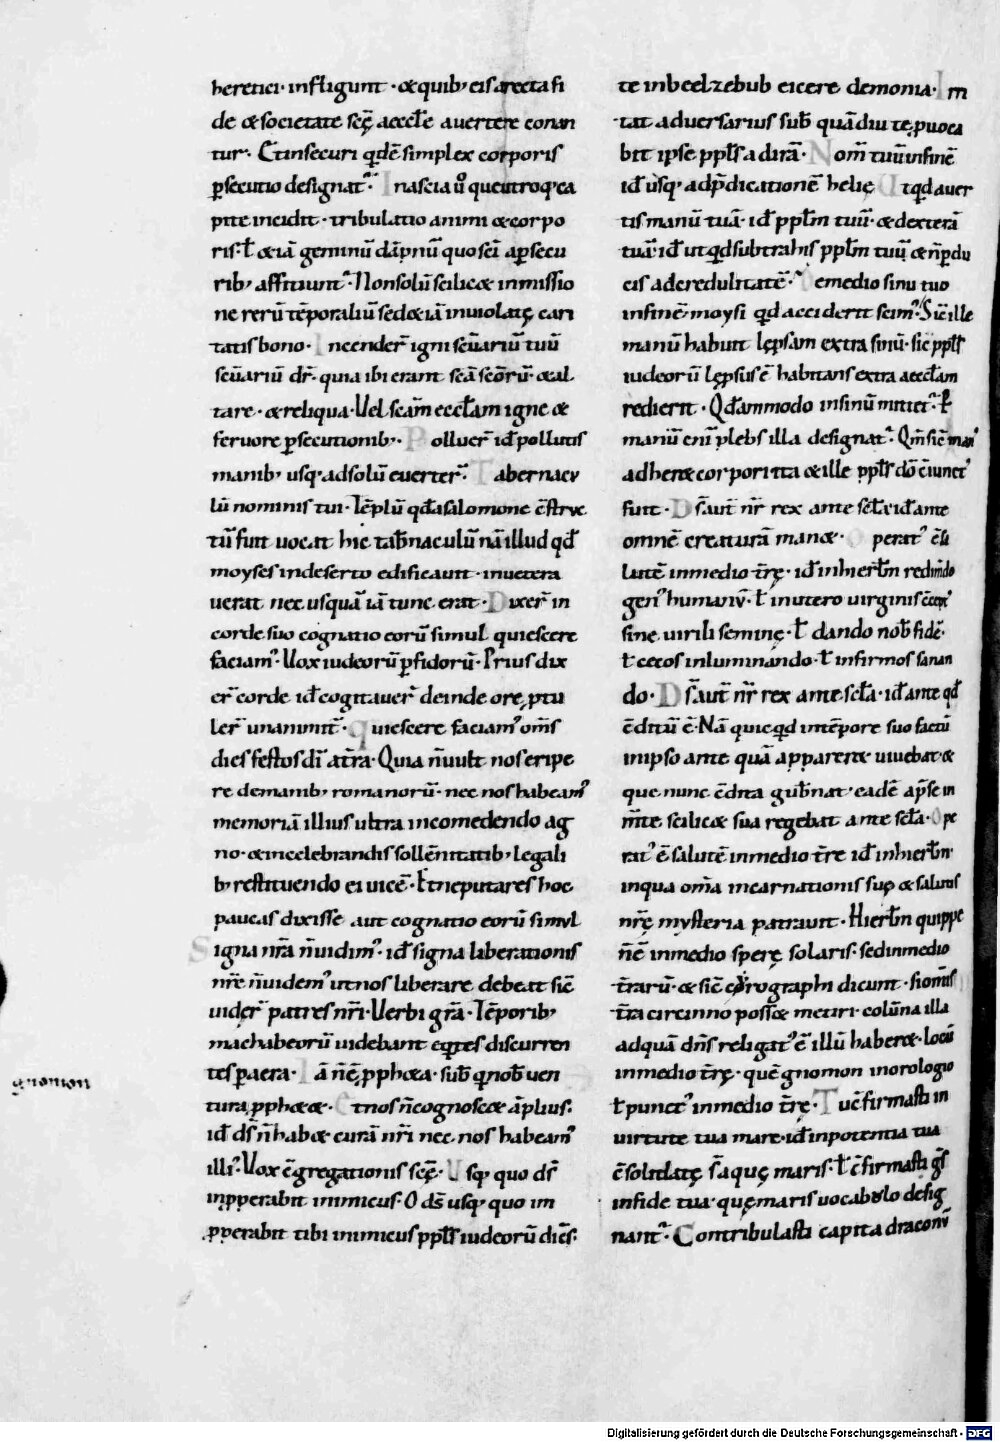 heretici· infligunt ·& quib; eis a recta fi
de & societate sc̄ę aeccłe auertere conan
tur· Et in securi qđē simplex corporis
p̱secutio designat̃· In ascia ũo que utroq; ca
pite incidit· tribulatio animi & corpo
ris· ł & iā geminū dāpnū quo scī a p̱secu
rib; afficiunt̃· Non solū scilic& in missio
ne rerū tēporaliū sed & iā in uiolatę cari
tatis bono· Incender̃ igni sc̄uariū tuū
sc̄uariū dr̄· quia ibi erant sc̄ā sc̄orū· & al
tare· & reliqua· Vel sc̄am eccłam igne &
feruore p̱secutionib;· Polluer̃ id̄ pollutis
manib; usq; ad solū euerter̃· Tabernacu
lū nominis tui· Tēplū qđ a salomone c̄struc
tū fuit uocat hic tab̄naculū nā illud qđ
moyses in deserto edificauit· inuetera
uerat nec usquā iā tunc erat· Dixer̃ in
corde suo cognatio eorū simul quiescere
faciam᾽· Uox iudeorū p̱fidorū· Prius dix
er̃ corde id̄ cogitauer̃ deinde ore p̱tu
ler̃ unanimit̃· quiescere faciam᾽ om̄s
dies festos dī a tr̄a· Quia n̄ uult nos eripe
re de manib; romanorū· nec nos habeam᾽
memoriā illius ultra in comedendo ag
no· & in celebrandis sollēnitatib; legali
b; restituendo ei uicē· Et ne putares hoc
paucas dixisse aut cognatio eorū simul
Signa nr̄a n̄ uidim᾽· id̄ signa liberationis
nr̄ę n̄ uidem᾽ ut nos liberare debeat sic̄
uider̃ patres nr̄i· Verbi gr̄a· Tēporib;
machabeorū uidebant eq̇tes discurren
tes p̱ aera· Iā n̄ ē p̱ph&a· sub̄ q̇ nob̄ uen
tura p̱ph&&· et nos n̄ cognosc& āplius·
id̄ ds̄ n̄ hab& curā nr̄i nec nos habeam᾽
illi᾽· Vox c̄gregationis sc̄ę· Usq; quo ds̄
inp̱perabit inimicus· O ds̄ usq; quo im
p̱perabit tibi inimicus pp̄ls iudeorū dic̄s·
gnomon
te in beelzebub eicere demonia· Im
tat aduersarius sub̄ quādiu te p̱uoca
bit ipse pp̄ls ad irā· Nom̄ tuū in finē
id̄ usq; ad p̄dicationē helię Ut qđ auer
tis manū tuā· id̄ pp̄lm tuū· & dexterā
tuā· id̄ ut qđ subtrahis pp̄lm tuū & n̄ p̱du
cis ad credulitatē· De medio sinu tuo
in finē· moysi qđ acciderit scim᾽· Sic̄ ille
manū habuit lęp̱sam extra sinū· sic pp̄ls
iudeorū lęp̱sus ē habitans extra aeccłam
redierit· Qđammodo in sinū mittet̃· P̱
manū eni plebs illa designat̃· Qm̄ sic̄ man᾽
adher& corpori ita & ille pp̄ls dō c̄iunct᾽
fuit· Ds̄ aut̄ nr̄ rex ante sc̄la· id̄ ante
omnē creaturā man&· operat᾽ ē sa
lutē in medio tr̄ę· id̄ in hierl̄m redimdo
gen᾽ humanū· ł in utero uirginis c̄cept᾽
sine uirili seminę· ł dando nob̄ fidē·
ł cecos inluminando· ł infirmos sanan
do· Ds̄ aut̄ nr̄ rex ante sc̄la· id̄ ante qđ
c̄ditū ē· Nā quicqđ in tēpore suo factū
in ipso ante quā apparer& uiuebat· &
que nunc c̄dita gub̄nat· eadē ap̄ se in
m̄te scilic& sua regebat ante sc̄la· Ope
rat᾽ ē salutē in medio tr̄e id̄ in hierl̄m·
in qua om̄a incarnationis suę & salutis
nr̄ę mysteria patrauit· Hierl̄m quippe
n̄ ē in medio sperę solaris· sed in medio
tr̄arū· & sic̄ corographi dicunt· si om̄is
tr̄a circinno poss& metiri· colūna illa
ad quā dn̄s religat᾽ ē illū haber& locū
in medio tr̄ę· quē gnomon in orologio
ł punct᾽ in medio tr̄ę· Tu c̄firmasti in
uirtute tua mare· id̄ in potentia tua
c̄solidatę s̄ aquę maris· ł c̄firmasti ḡs
in fide tua· quę maris uocabolo desig
nant̃· Contribulasti capita draconū